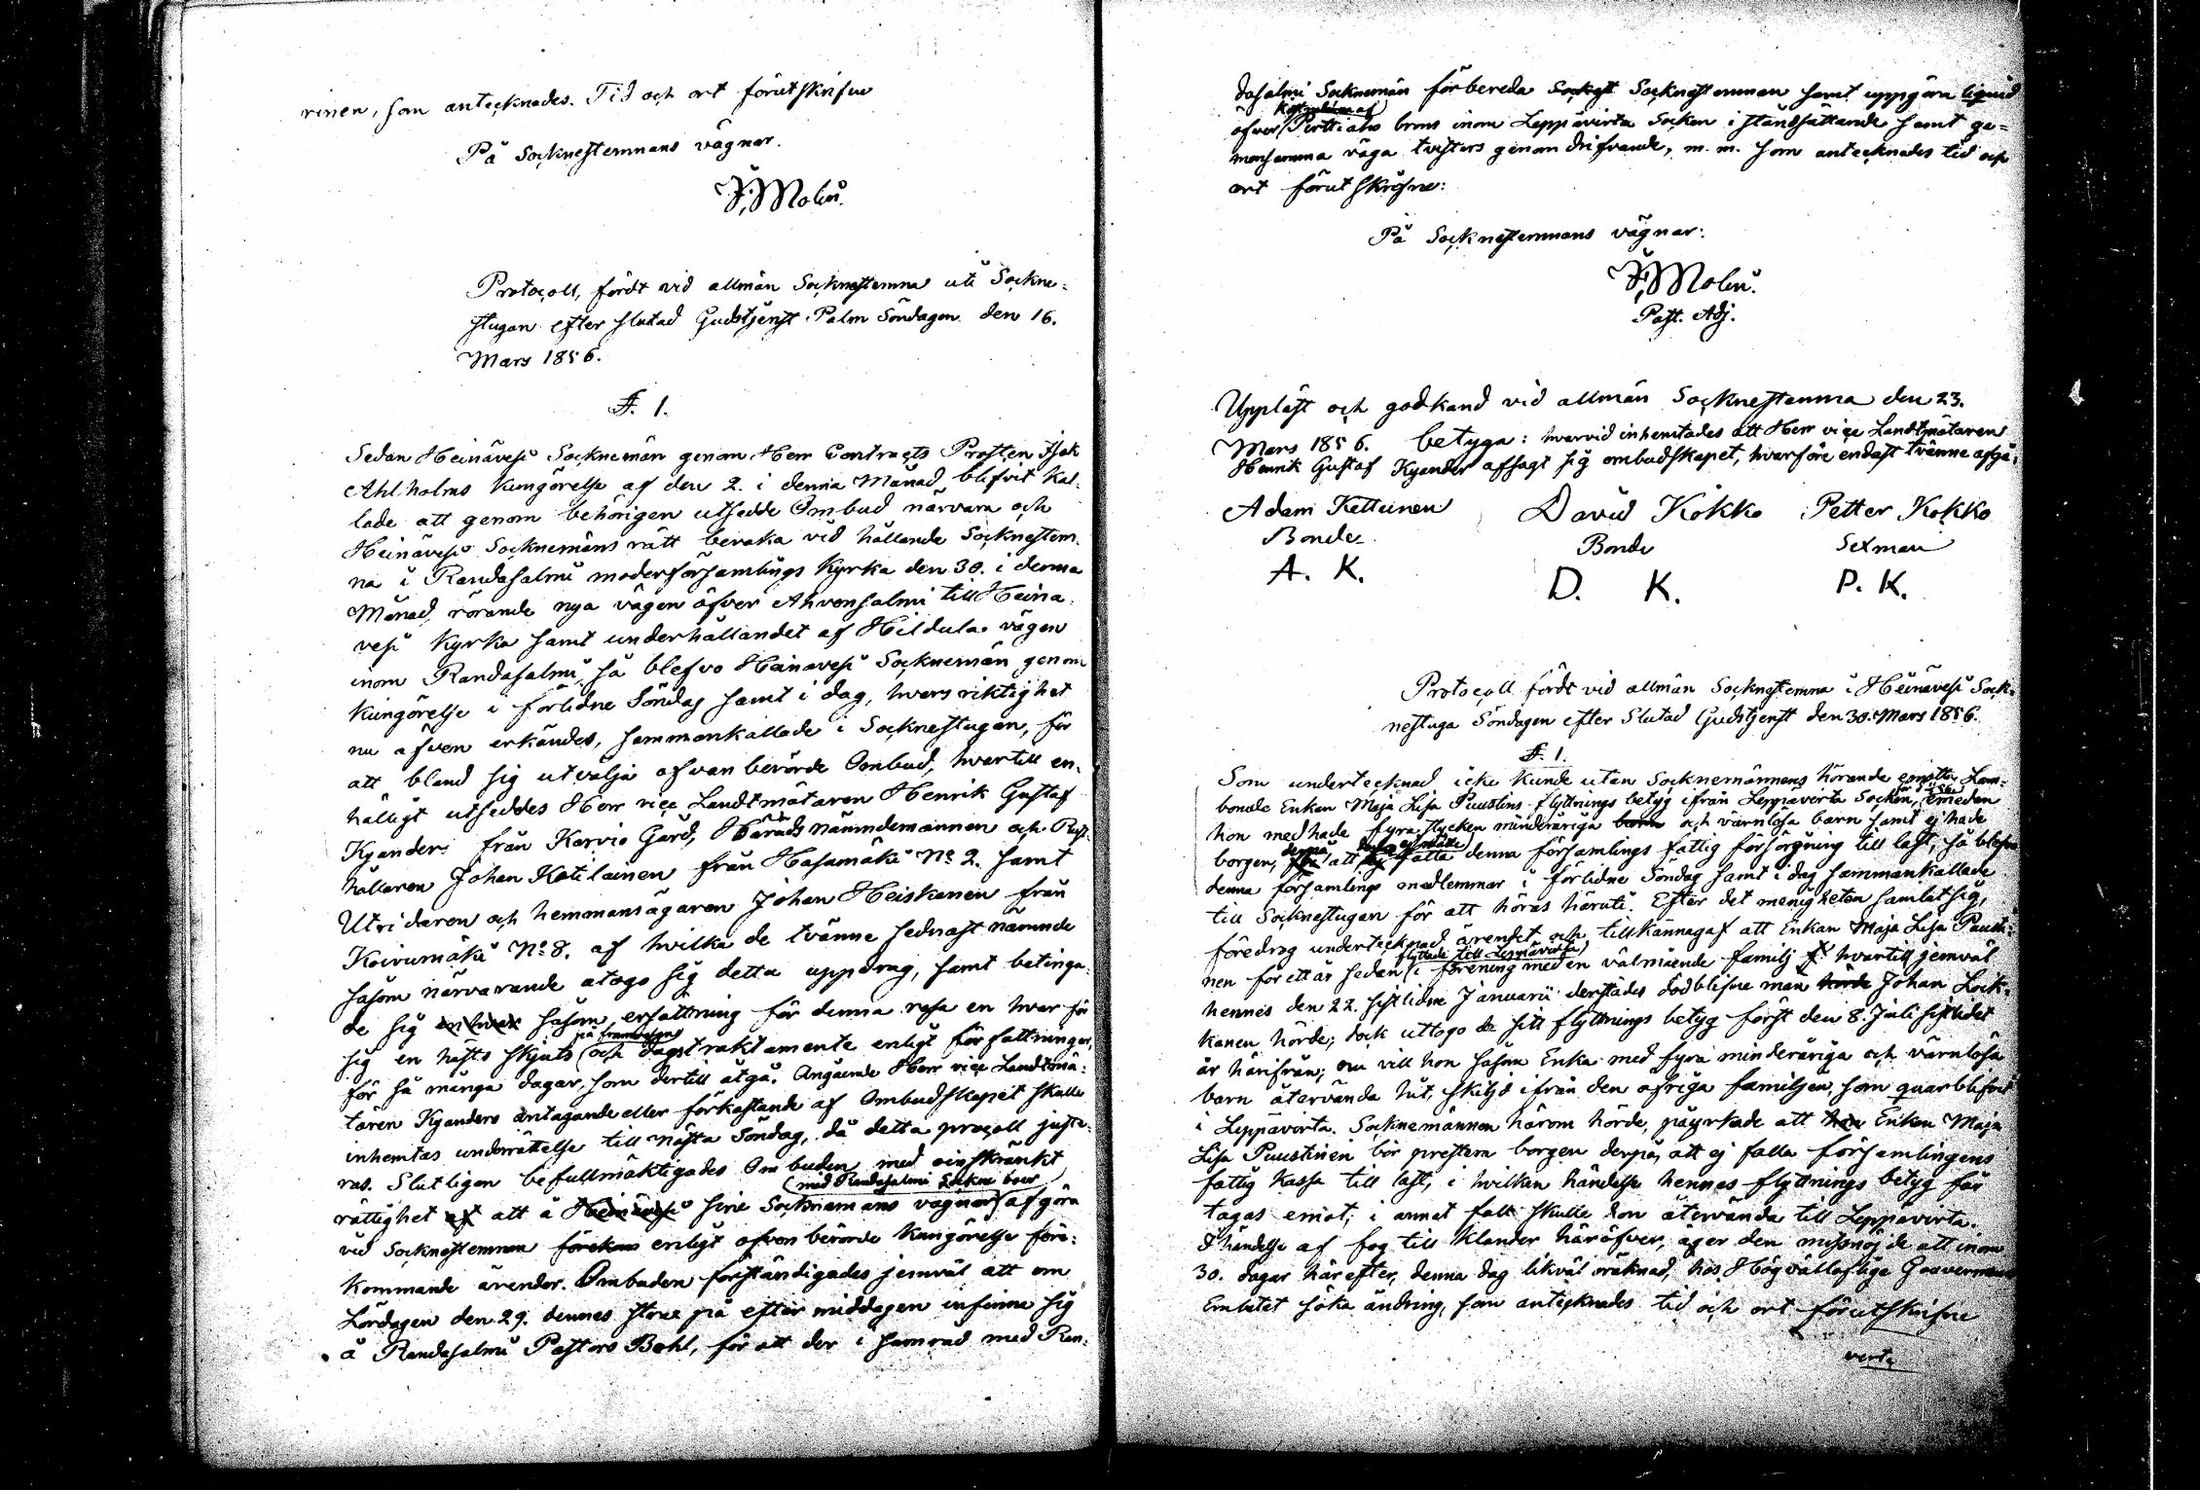 rinen, som antecknades. Tid och ort förutskrifne
På Socknestemmans vägnar.
J. Molin.
Protocoll, fördt vid allmän Socknestemma uti Sockne-
stugan efter slutad Gudstjenst Palm Söndagen den 16.
Mars 1856.
§. 1.
Sedan Heinävesi Socknemän genom Herr Contracts Prosten Isak
Ahlholms kungörelse af den 2. i denna Månad blifvit kal-
lade att genom behörigen utsedde Ombud närvara och
Heinävesi Socknemäns rätt bevaka vid hållande Socknestem-
na i Randasalmi moderförsamlings Kyrka den 30. i denna
Månad, rörande nya vägen öfver Ahvensalmi till Heinä-
vesi Kyrka samt underhållandet af Hildula vägen
inom Randasalmi, så blefvo Heinävesi Socknemän genom
Kungörelse i förlidne Söndag samt i dag, hvars riktighet
nu äfven erkändes, sammankallade i Socknestugan, för
att bland sig utvälja ofvan berörde Ombud, hvartill en-
hälligt utseddes Herr vice Landtmätaren Henrik Gustaf
Kyander från Karvio Gård, Härads nämndemannen och Rust-
hållaren Johan Kotilainen från Hasumäki No 2. samt
Utridaren och hemmansägaren Johan Heiskanen från
Koirumäki No 8. af hvilka de tvänne sednast nämnde
såsom närvarande åtogo sig detta uppdrag, samt betinga-
de sig en hvar såsom ersättning för denna resa en hvar för
sig en hästs skjuts på framresan och dagstraktamente enligt författningar,
för så många dagar, som dertill åtgå. Angående Herr vice Landtmä-
tären Kyanders antagande eller förkastande af Ombudskapet skulle
inhemtas underrättelse till nästa Söndag, då detta procoll juste-
ras. Slutligen befullmäktigades Ombuden med oinskränkt
rättighet af att å Heinävesi sine Socknemäns vägnar med Randasalmi Sockne boer afgöra
vid Socknestemman förekom enligt ofvan berörde Kungörelse före-
kommande ärender. Ombuden förständigades jemväl att om
Lördagen den 29. dennes strax på efter middagen infinna sig
å Randasalmi Pastors Bohl, för att der i samråd med Ran-
dasalmi Socknemän förbereda Sockgt Socknestemman samt uppgöra liquid
öfver Kostnaden af Perttialns brons inom Leppävirta Socken i ståndsättande samt ge-
mensamma väga tvisters genom drifvande, m. m. som antecknades tid och
ort förutskrifne:
På Socknestemmans vägnar:
J. Molin.
Past. Adj.
Uppläst och godkänd vid allmän Socknestemma den 23.
Mars 1856. betyga: hvarvid inhemtades att Herr vice Landtmätaren
Henrik Gustaf Kyander afsagt sig ombudskapet, hvarföre endast tvänne afgå:
Adam Kettunen David Kokko Petter Kokko
Bonde Bonde Sexman
A. K. D. K. P. K.
Protocoll fördt vid allmän Socknestemma i Heinävesi Sock-
nestuga Söndagen efter Slutad Gudstjenst den 30. Mars 1856.
§. 1.
Som undertecknad icke kunde utan Socknemännens hörande emotta Lam-
bonde Enkan Maja Lisa Puustins flyttnings betyg ifrån Leppävirta Socken, emedan
hon medhade fyra stycken minderåriga barn och värnlösa barn samt ej hade
borgen, derpå att ej falla denna församlings fattig försörgning till last, så blefvo
denna församlings medlemmar i förlidne Söndag samt i dag sammankallade
till Socknestugan för att höras häruti. Efter det menigheten samlat sig,
föredrog undertecknad ärendet och tillkännagaf att Enkan Maja Lisa Puusti-
nen för ett år sedan flyttade till Leppävirta i förening med en välmående familj hvartill jemväl
hennes den 22. sistlidne Januarii derstädes dödblifne man hörde Johan Lock-
kanen hörde; dock uttogo de sitt flyttnings betyg först den 8. Juli sistledet
år härifrån; nu vill hon såsom Enka med fyra minderåriga och värnlösa
barn återvända hit, skiljd ifrån den öfriga familjen, som quarblifvit
i Leppävirta. Socknemännen härom hörde, påyrkade att hon Enkan Maja
Lisa Puustinen bör prestera borgen derpå, att ej falla församlingens
fattig kassa till last, i hvilken händelse hennes flyttnings betyg får
tagas emot; i annat fall skulle hon återvända till Leppävirta.
I händelse af fog till klander häröfver, äger den missnöjde att inom
30. dagar härefter, denna dag likväl oräknad, hos Högvällofliga Gouvernements
Embetet söka ändring, som antecknades tid och ort förutskrifne
verte